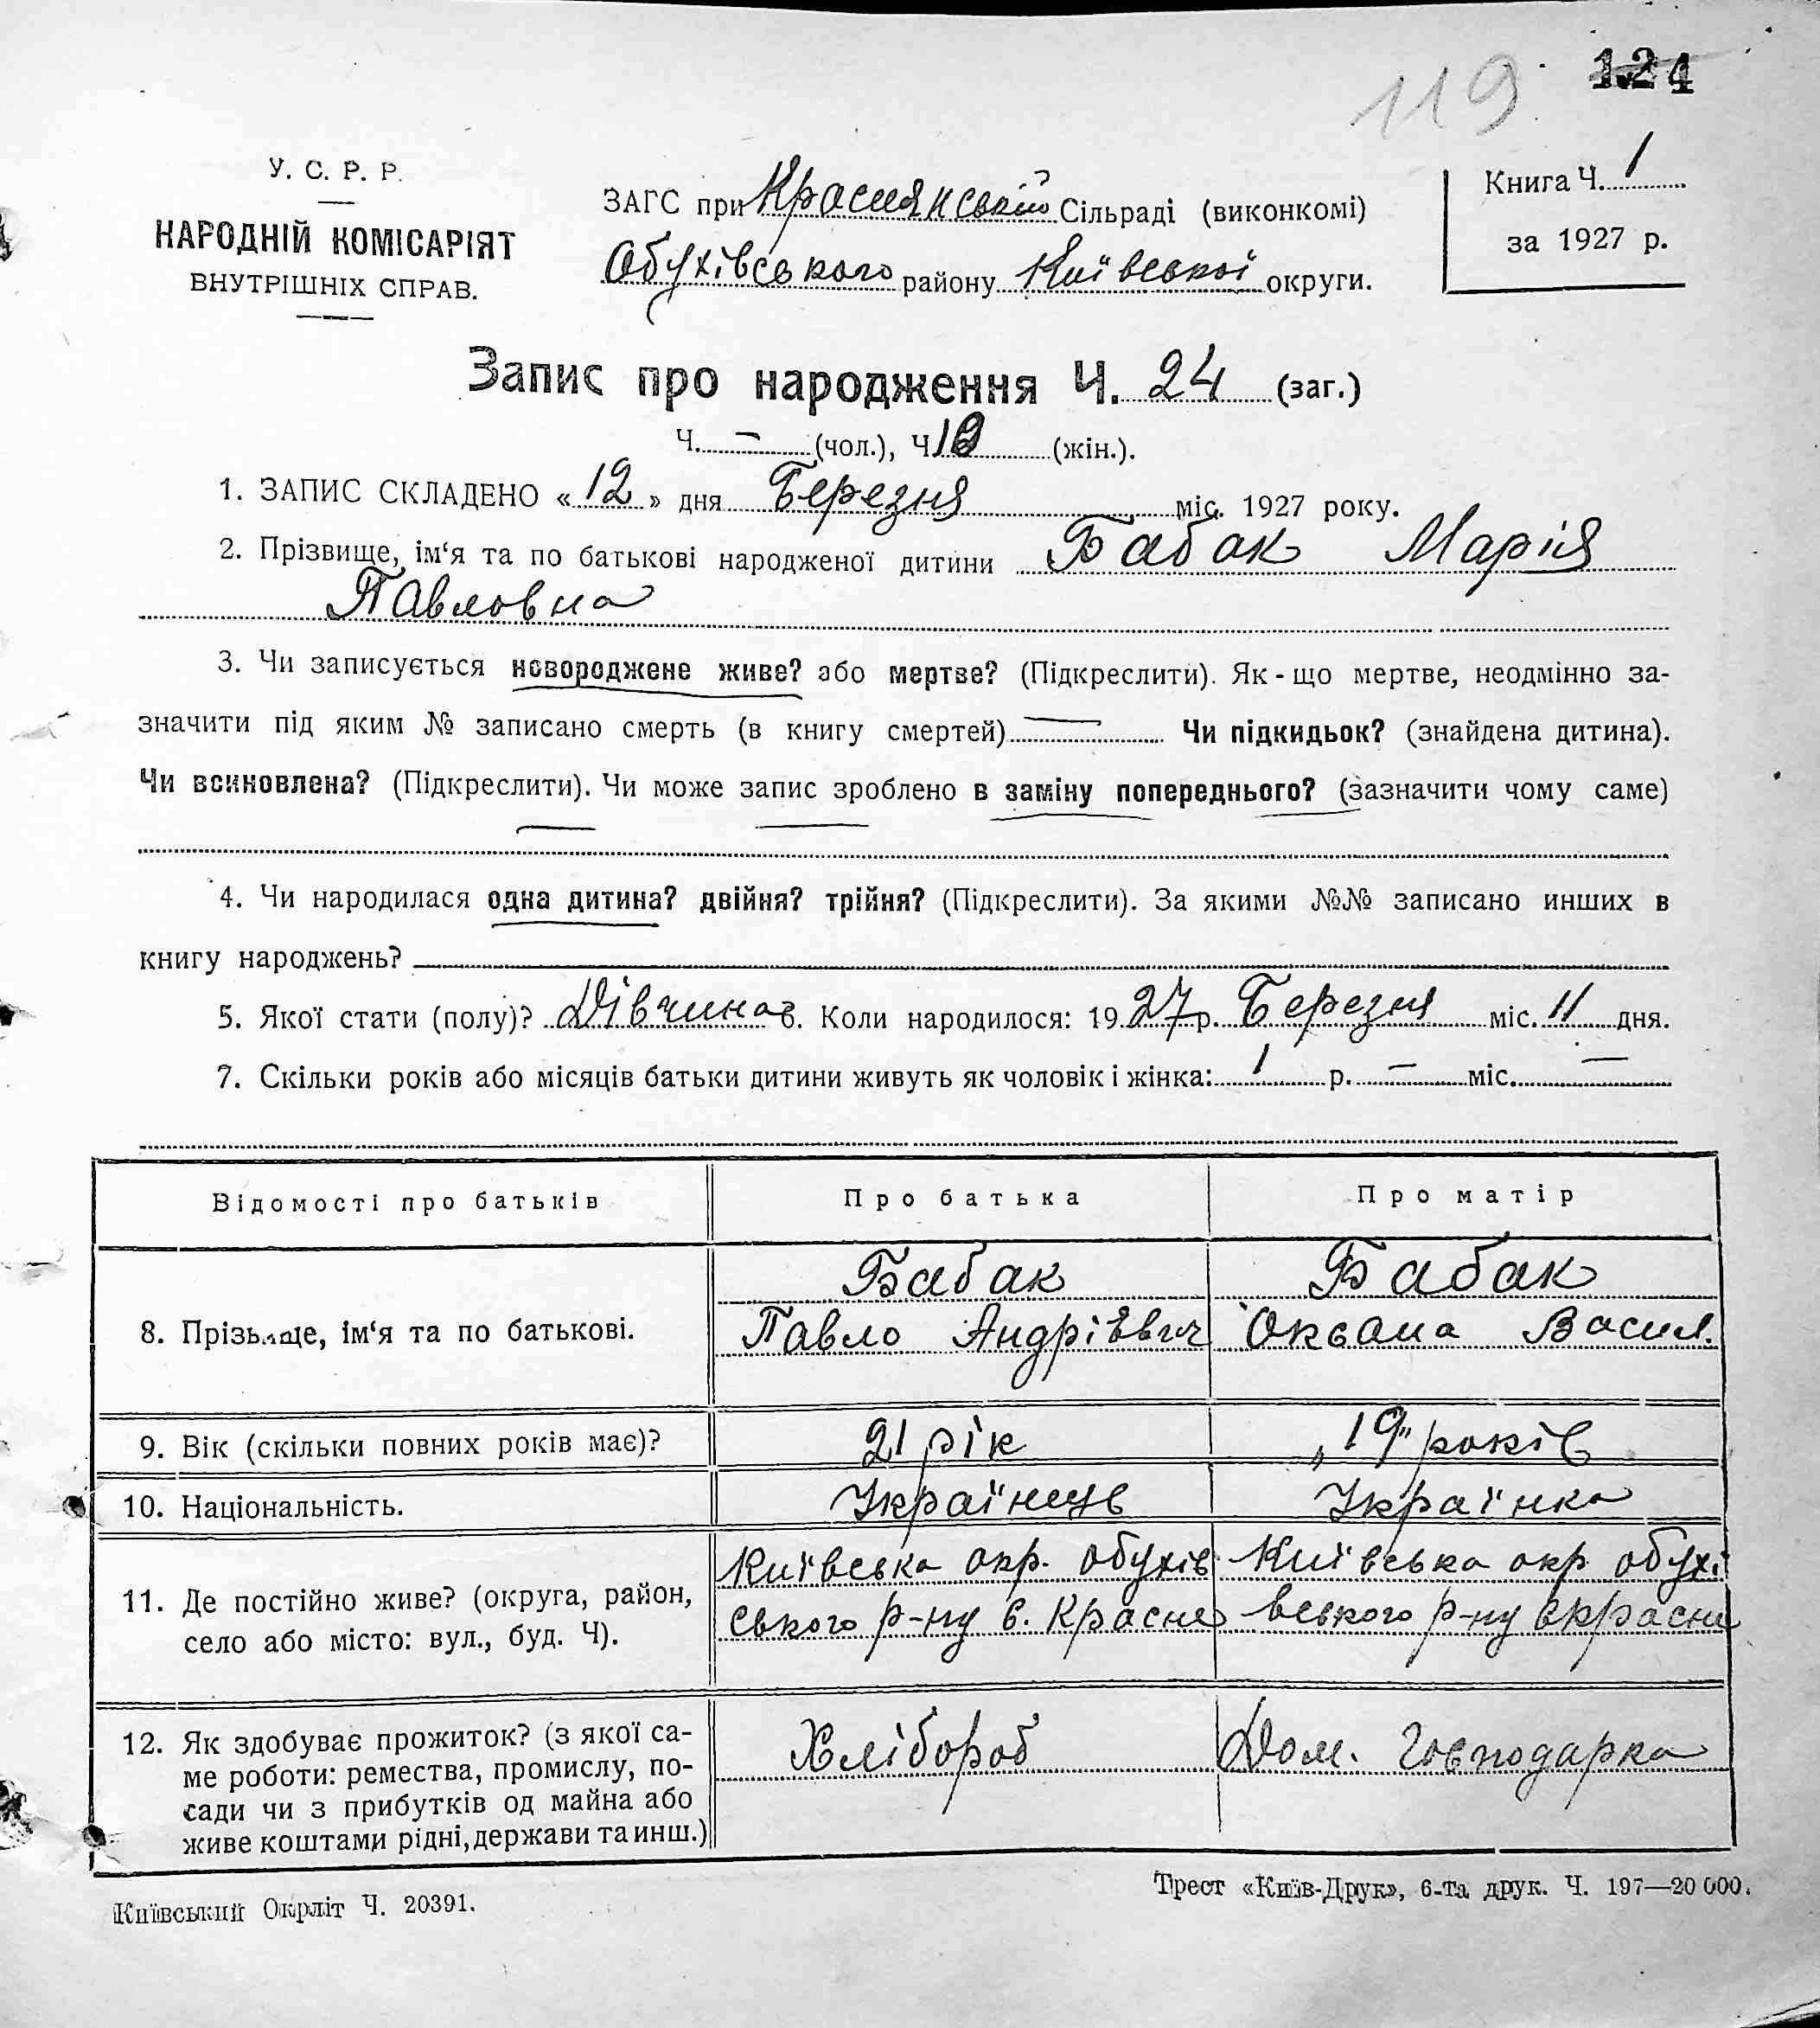 124
119
У. С. Р. Р.
НАРОДНІЙ КОМІСАРІЯТ
ВНУТРІШНІХ СПРАВ.
ЗАГС при Краснянській Сільраді (виконкомі)
Обухівського району Київської округи.
Книга Ч. 1
за 1927 р.
Запис про народження Ч. 24 (заг.)
Ч. — (чол.), Ч. (жін.).
1. ЗАПИС СКЛАДЕНО «12» дня Березня міс. 1927 року.
2. Прізвище, ім‘я та по батькові народженої дитини Бабак Марія
Павловна
3. Чи записується новороджене живе? або мертве? (Підкреслити). Як-що мертве, неодмінно за-
значити під яким № записано смерть (в книгу смертей) — Чи підкидьок? (знайдена дитина).
Чи всиновлена? (Підкреслити). Чи може запис зроблено в заміну попереднього? (зазначити чому саме)
4. Чи народилася одна дитина? двійня? трійня? (Підкреслити). За якими №№ записано инших в
книгу народжень?
5. Якої стати (полу)? Дівчина 6. Коли народилося: 1927 р. Березня міс. 11 дня.
7. Скільки років або місяців батьки дитини живуть як чоловік і жінка: 1 р. — міс. —
Відомості про батьків Про батька Про матір
8. Прізвище, ім‘я та по батькові. Бабак Бабак
Павло Андріевич Оксана Васил.
9. Вік (скільки повних років має)? 21 рік „19" років
10. Національність. Українець Українка
11. Де постійно живе? (округа, район,
село або місто: вул., буд. Ч).
Київська окр. обухів
ського р-ну с. Красне
Київська окр обухі
вського р-ну с Красне
12. Як здобуває прожиток? (з якої са-
ме роботи: ремества, промислу, по-
сади чи з прибутків од майна або
живе коштами рідні, держави та инш.)
Хлібороб Дом. Господарка
Київський Окрліт Ч. 20391.
Трест «Київ-Друк», 6-та друк. Ч. 197—20 000.